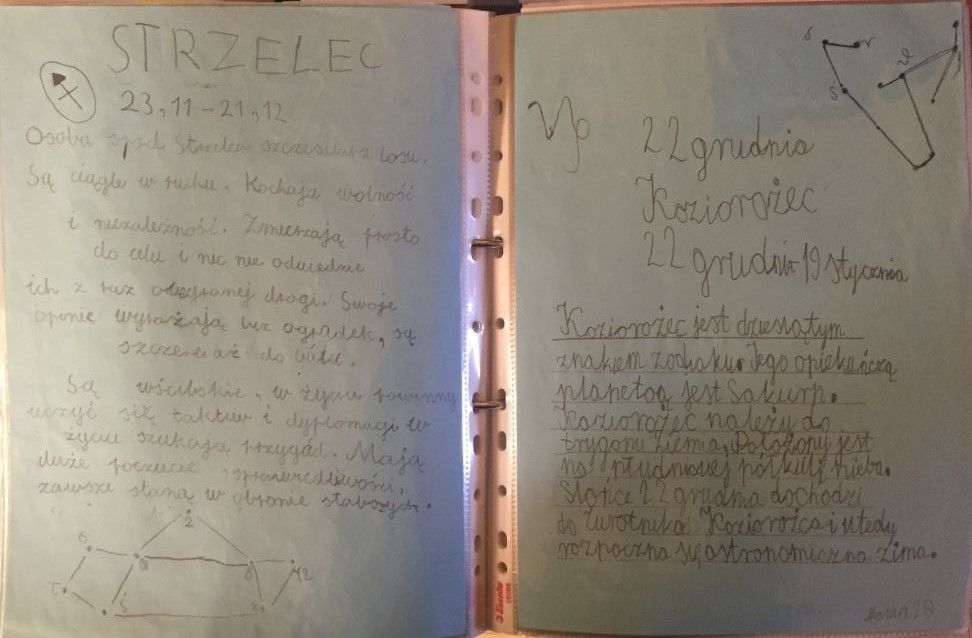 STRZELEC
23,11-21,12
Osoba spod Strzelca szczęściarz losu.
Są ciągle w ruchu. Kochają wolność
i niezależność. Zmierzają prosto
do celu i nic nie odwiedzie
ich z raz obranej drogi. Swoje
opinie wyrażają bez ogródek, są
do bólu.
Są wścibskie, w życiu powinny
uczyć się taktuw i dyplomacji w
życiu szukają przygód. Mają
duże poczucie sprawiedliwości,
zawsze staną w obronie słabszych.
2
6
5
12
22 grudnia
Koziorożec
22 grudnia-19 stycznia
Koziorożec jest dziesiątym
znakiem zodiaku. Jego opiekuńczą
planetą jest Saturn.
Koziorożec należy do
trygonu ziemia. Położony jest
na południowej półkuli nieba.
Słońce 22 grudnia dochodzi
do zwrotnika Koziorożca i wtedy
rozpoczna się astronomiczna zima.
2B
Esselte